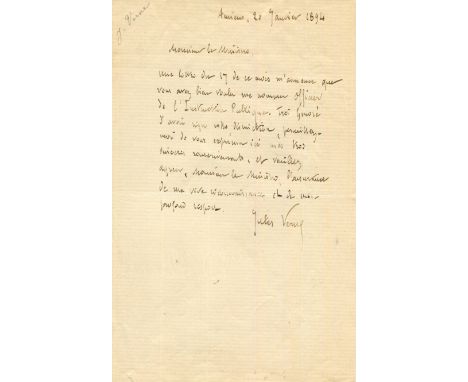 J. Verne
Amiens, 20 Janvier 1894
Monsieur le Ministre,
Une lettre du 17 de ce mois m'annonce que
vous avez bien voulu me nommer Officier
de l'Instruction Publique. Très honoré
d'avoir reçu cette distinction, permettez-
moi de vous exprimer ici mes très
sincères remerciements, et veuillez
agréer, Monsieur le Ministre, l'assurance
de ma vive reconnaissance et de mon
profond respect
Jules Verne